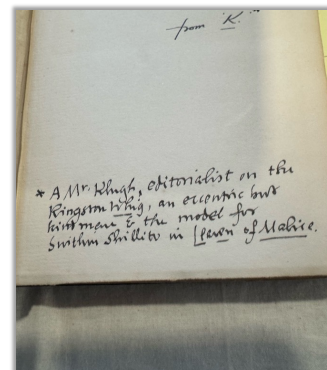 from "K."
* A Mr. Klugh, editorialist on the
Kingston Whig, an eccentric but
kind man & the model for
Swithin Shillito in Leaven of Malice.